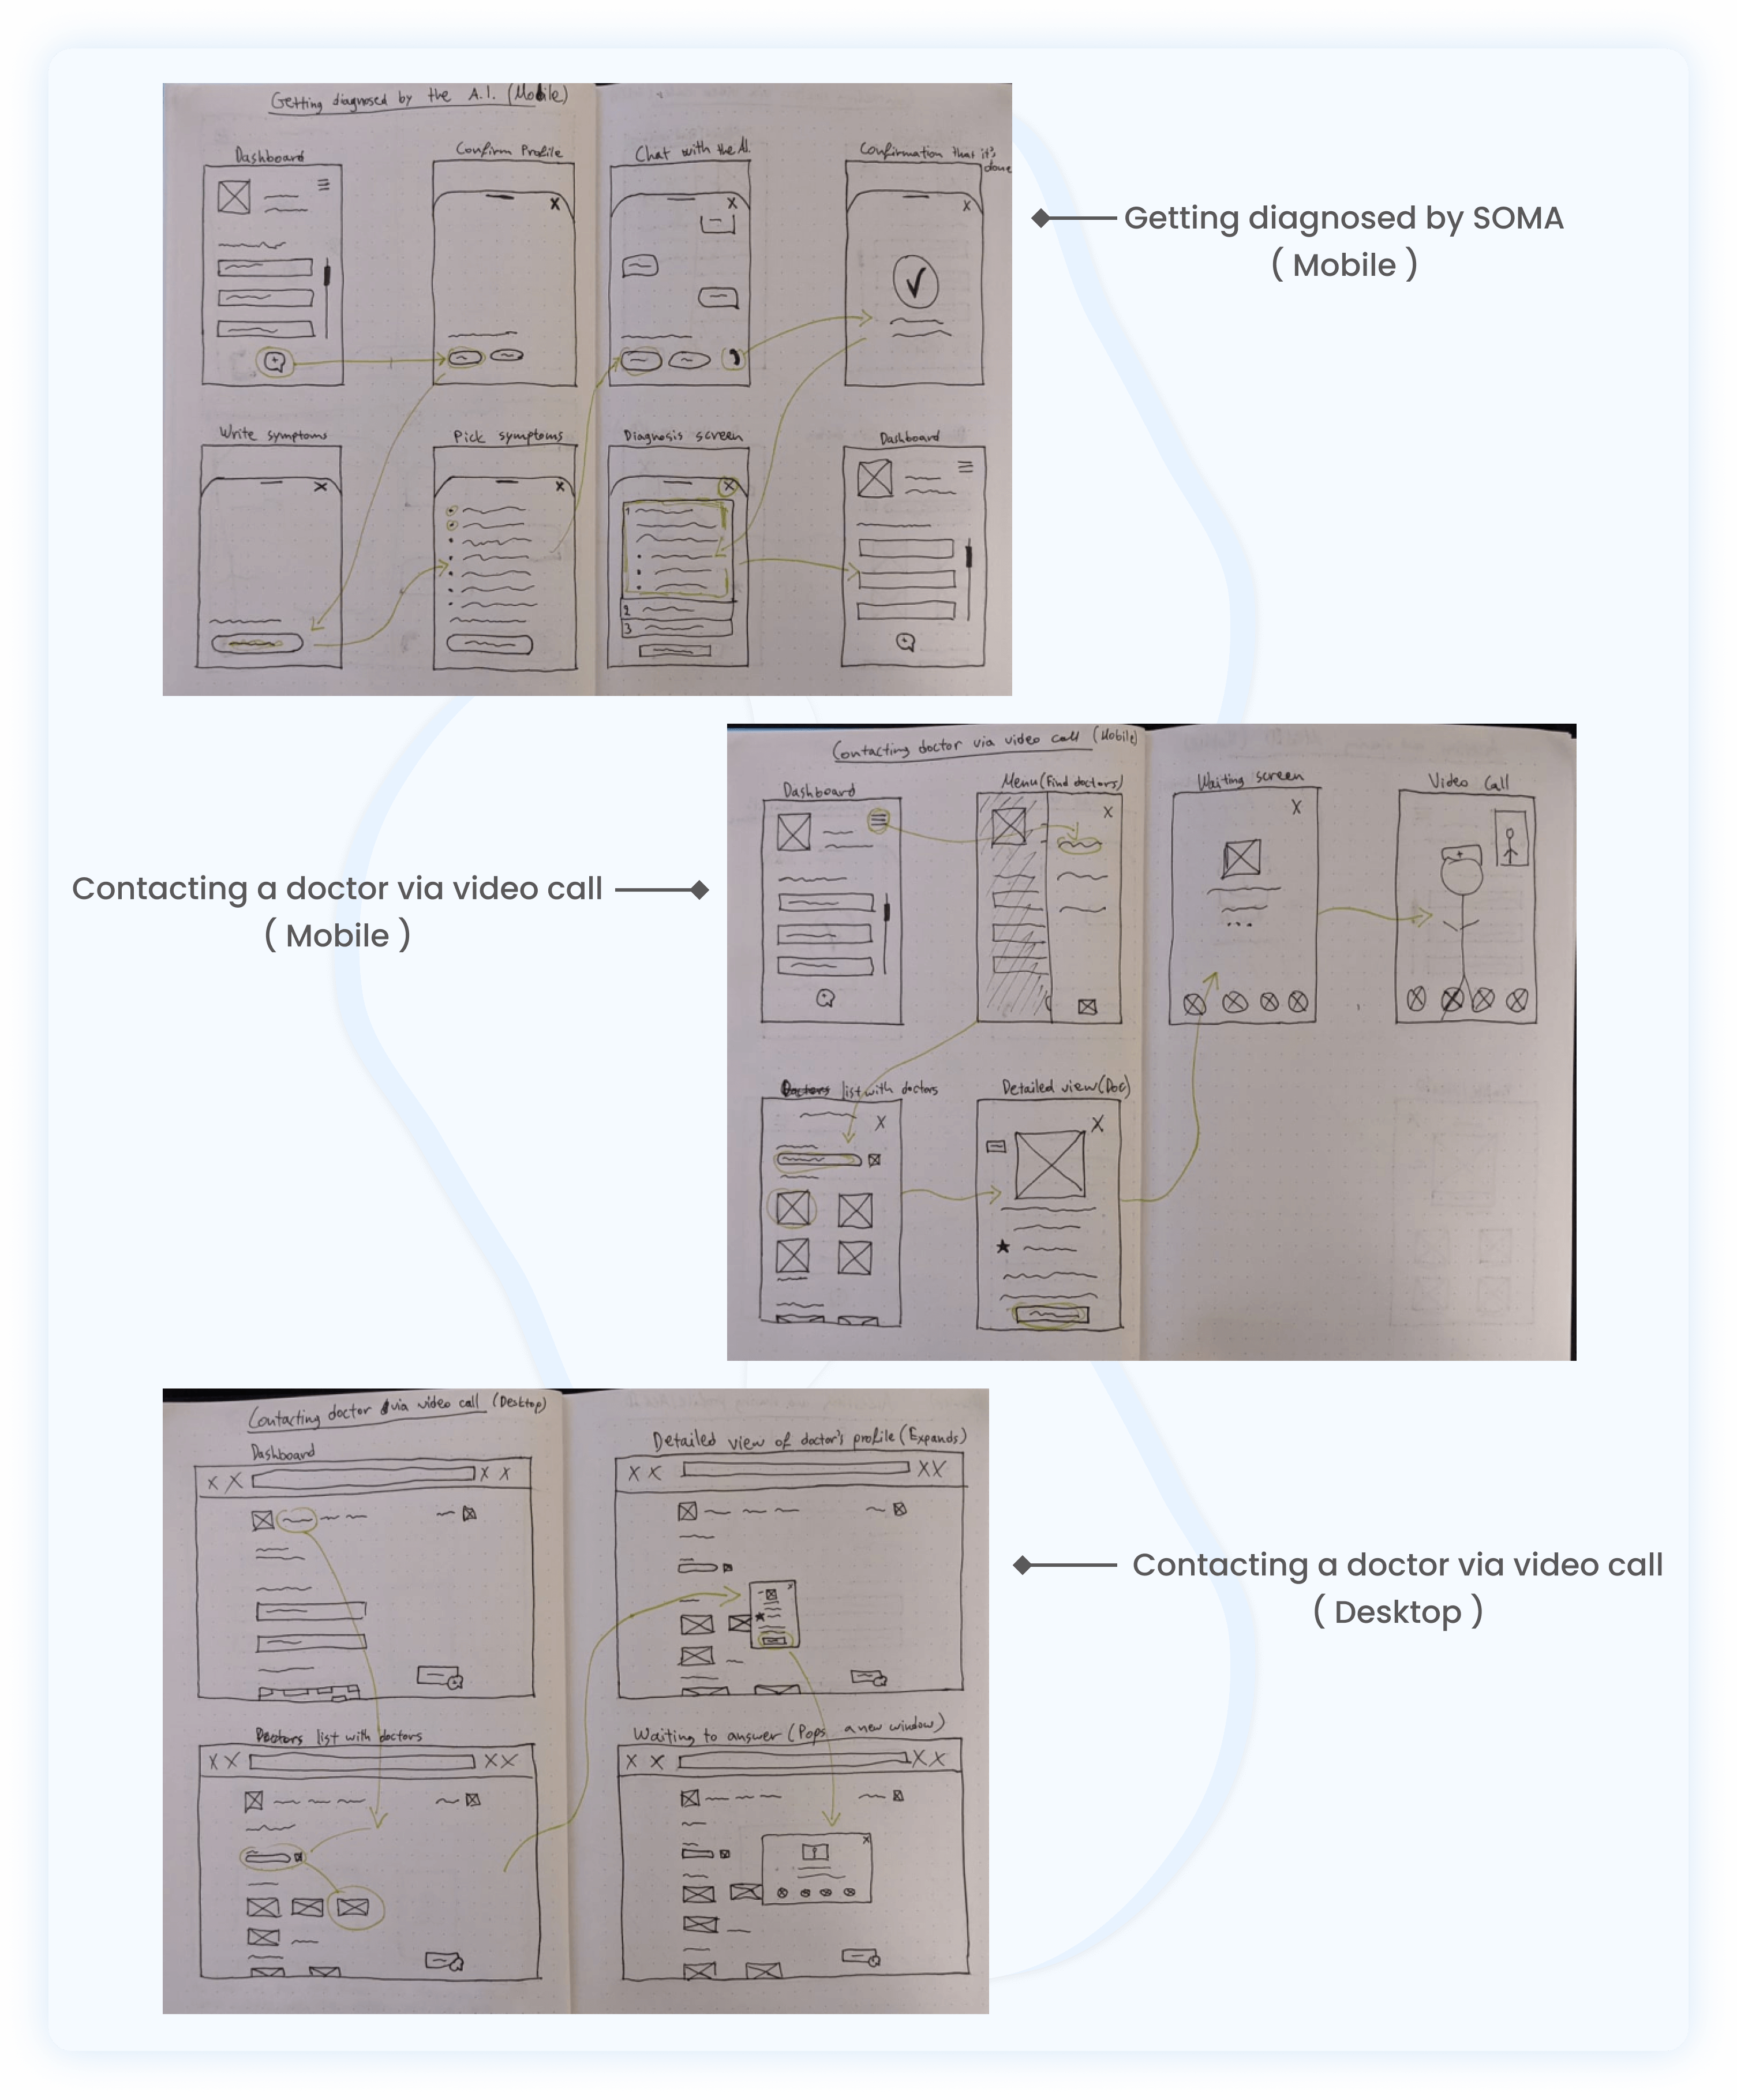 Getting diagnosed by the A.I. (Mobile)
Dashboard
Confirm Profile
Chat with the AI.
Confirmation that it's
done
Write symptoms
Pick symptoms
Diagnosis screen
1
2
3
Dashboard
Getting diagnosed by SOMA
( Mobile )
Contacting doctor via video call (Mobile)
Dashboard
Menu(Find doctors)
Waiting screen
Video Call
Doctors list with doctors
Detailed view(Doc)
Contacting a doctor via video call
( Mobile )
Contacting doctor via video call (Desktop)
Dashboard
Detailed view of doctor's profile(Expands)
Doctors list with doctors
Waiting to answer (Pops a new window)
Contacting a doctor via video call
( Desktop )